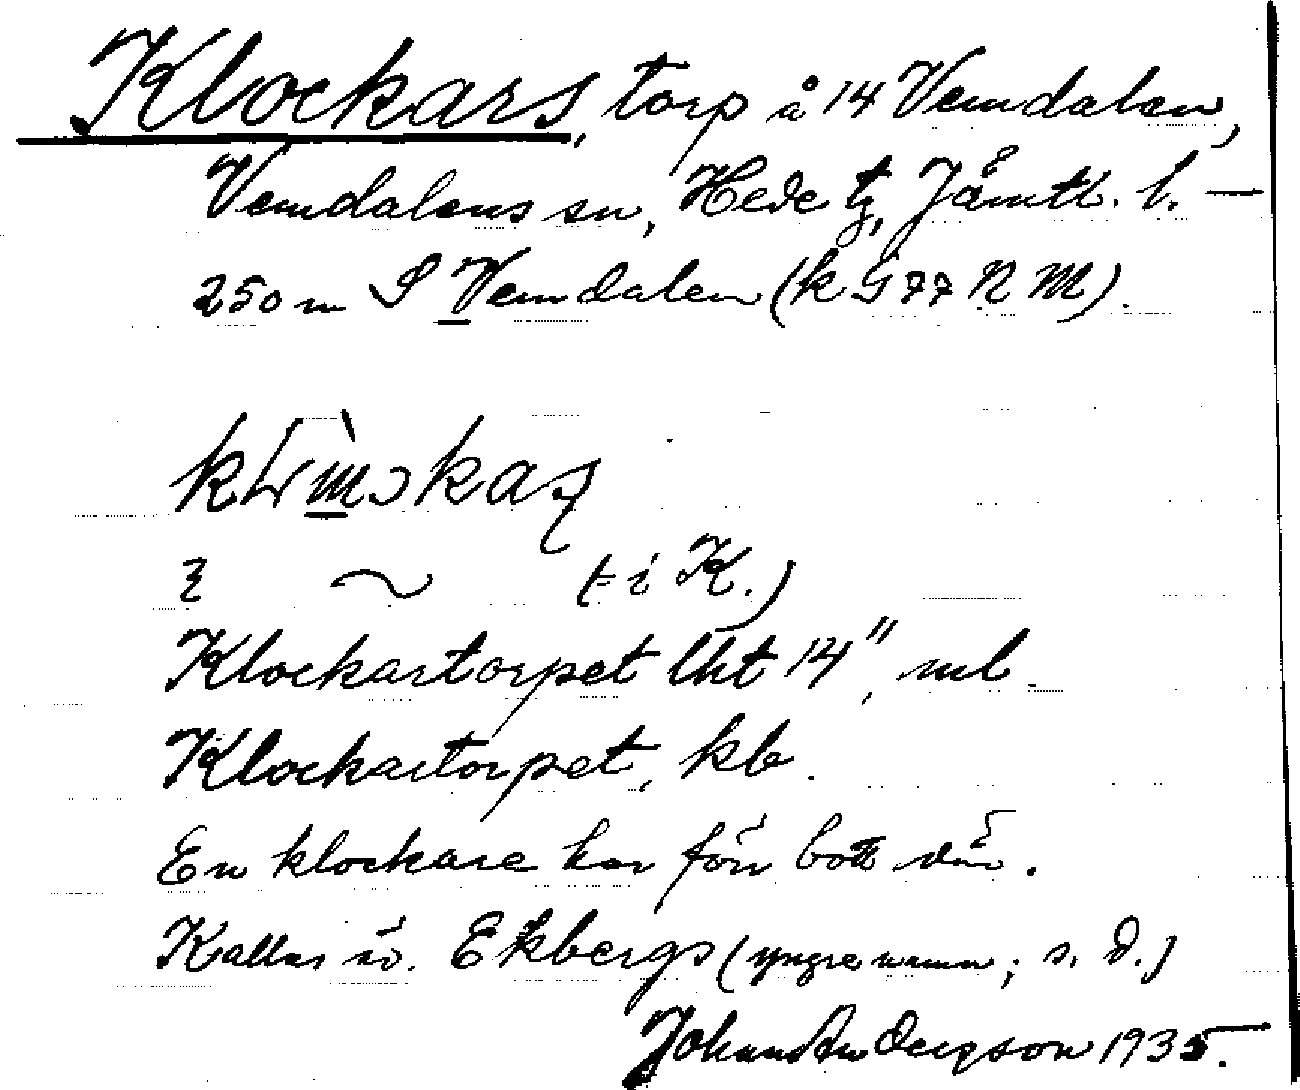 Klockars, torp å 14 Vemdalen,
Vemdalens sn, Hede tg, Jämtl. l. —
250 m S Vemdalen (k G 77 N M).
~ (t i K.)
Klockartorpet lht 14", ml.
Klockartorpet, kb.
En klockare har förr bott där.
Kallas äv. Ekbergs (yngre namn; s. d.)
Johan Andergson 1935.